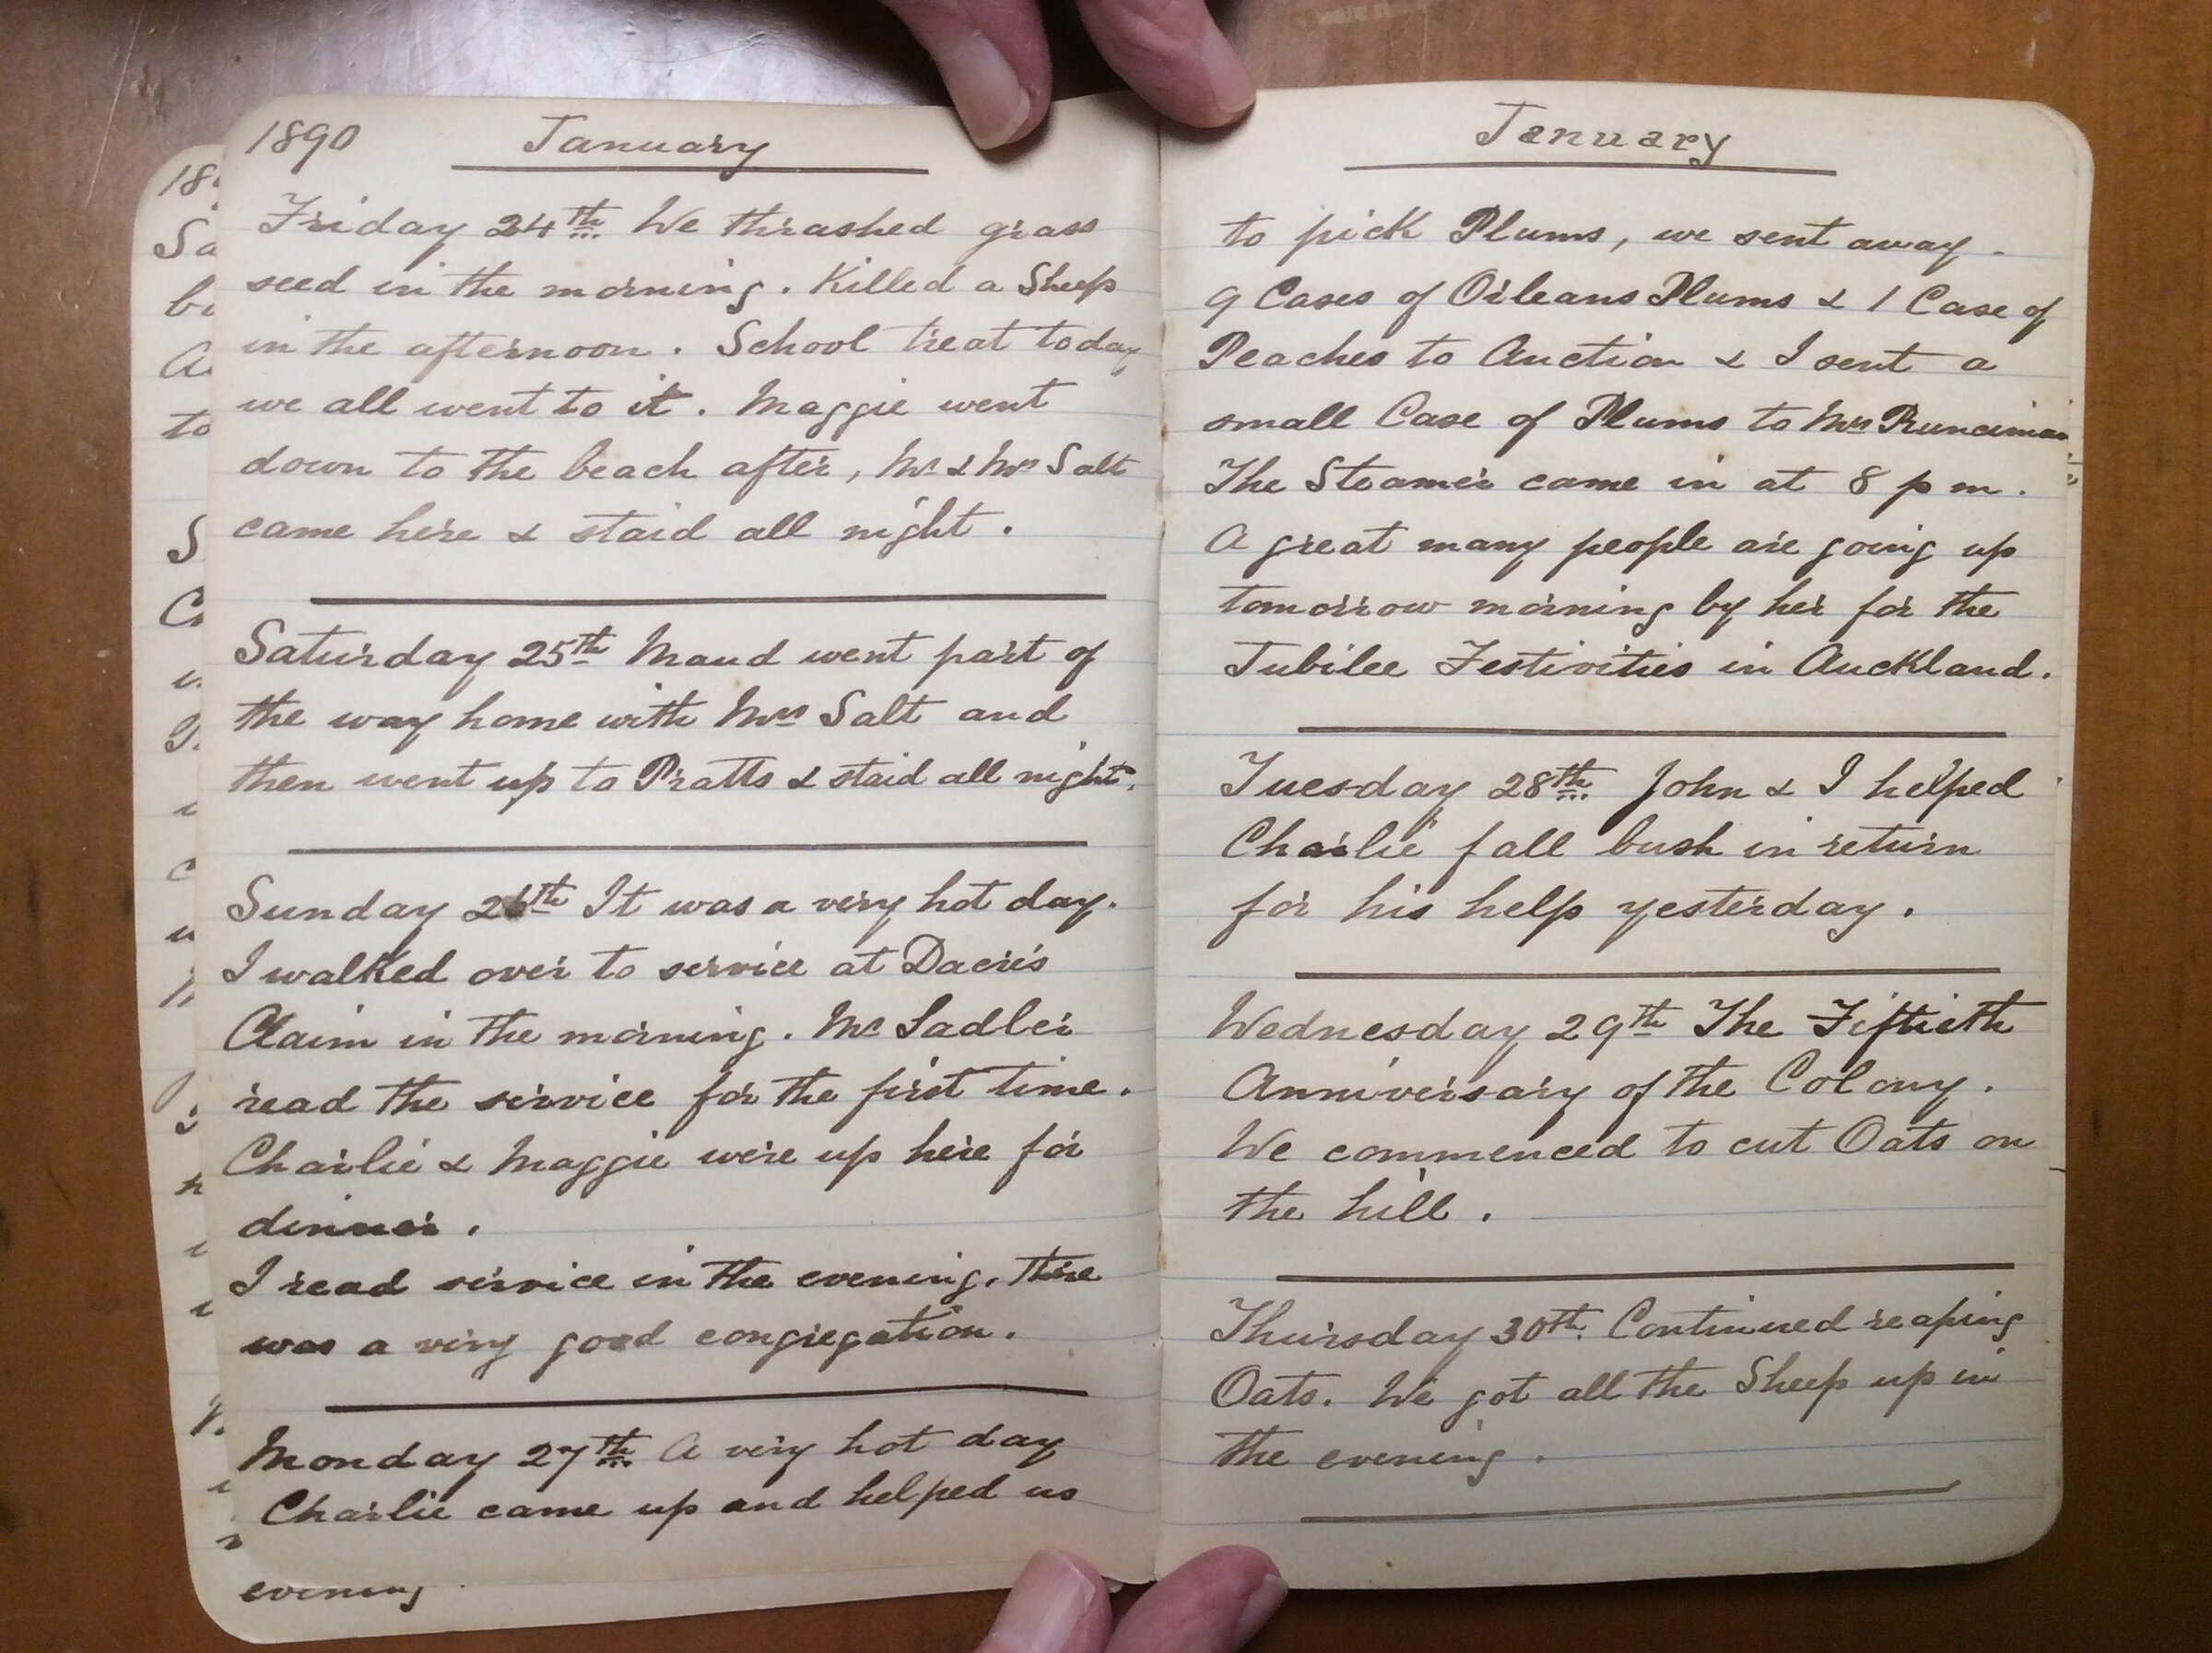 1890 January
Friday 24th We thrashed grass
seed in the morning. Killed a Sheep
in the afternoon. School treat today
we all went to it. Maggie went
down to the beach after, Mr & Mrs Salt
came here & staid all night.
Saturday 25th Maud went part of
the way home with Mrs Salt and
then went up to Pratts & staid all night.
Sunday 26th It was a very hot day.
I walked over to service at Dacre's
Claim in the morning. Mr Sadler
read the service for the first time.
Charlie & Maggie were up here for
dinner.
I read service in the evening. There
was a very good congregation.
Monday 27th A very hot day
Charlie came up and helped us
evening
January
to pick Plums, we sent away
9 Cases of Orleans Plums & 1 Case of
Peaches to Auction & I sent a
small Case of Plums to Mrs Runciman
The Steamer came in at 8 p m.
A great many people are going up
tomorrow morning by her for the
Jubilee Festivities in Auckland.
Tuesday 28th John & I helped
Charlie fall bush in return
for his help yesterday.
Wednesday 29th The Fiftieth
Anniversary of the Colony.
We commenced to cut Oats on
the hill.
Thursday 30th. Continued reaping
Oats. We got all the Sheep up in
the evening.